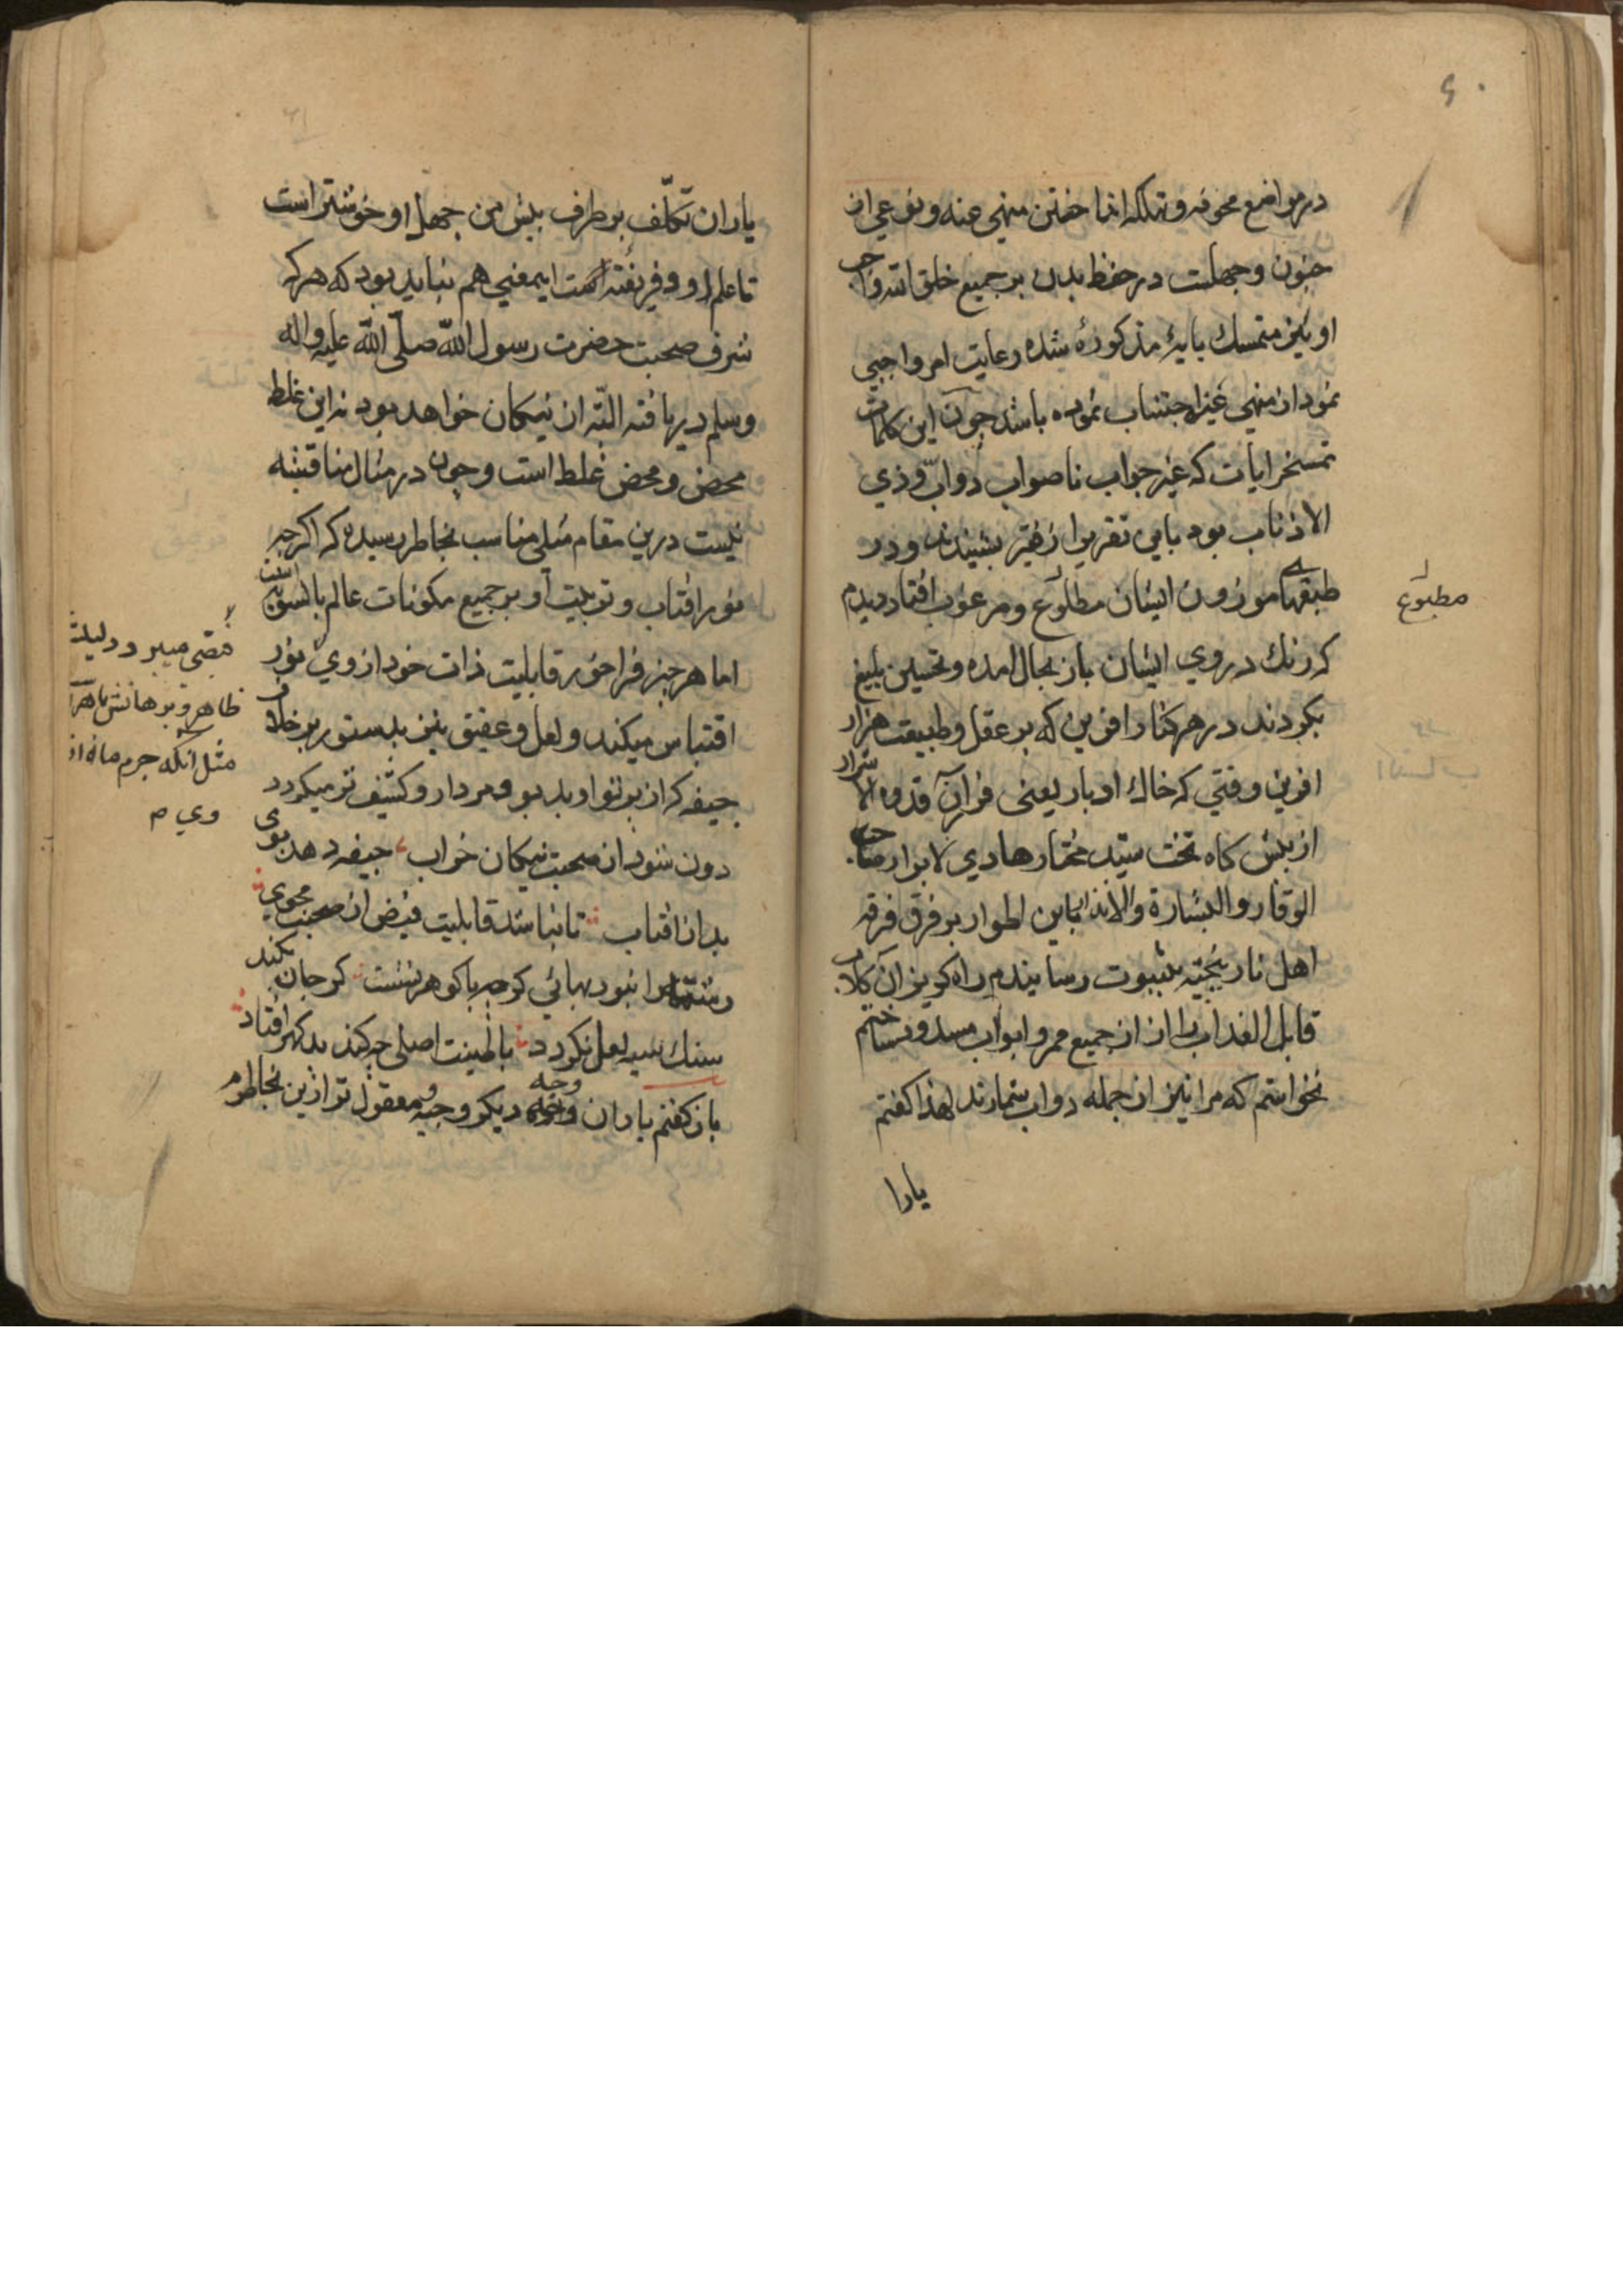 ۶۰
در مواضع مخوفه و تهلکه انما خفتن منهی عنه و نوعی از
جنون و جهلست در حفظ بدن بر جمیع خلق الله واجب
او نیز متمسک بایهٔ مذکوره شده رعایت امر واجبی
نمود از منهی عنه اجتناب نموده باشد چون این کلمات
تمسخر ایات که غیر جواب ناصواب دواب و ذی
الاذناب بود باین تقریر از فقیر بشنیدند و در
طبعهای موزون ایشان مطلوع و مرغوب افتاد دیدم
مطبوع
که رنک در روی ایشان باز بحال امده و تحسین بلیغ
بکردند در هر کنار افرین که بر عقل و طبیعت هزار
افرین وقتی که خاک ادبار یعنی فرار قدوه الاشرار
از پیش کاه تخت سید مختار هادی لابرار صاحب
الوقار و البشارة والانذار باین اطوار بر فرق فرقه
اهل نار بیخته بثبوت رسانیدم راه کریز ان کلاب
قابل العذاب را از جمیع ممر و ابواب مسدود ساختم
نخواستم که مرا نیز از جمله دواب شمارند لهذا کفتم
یارا
۶۱
یاران تکلف بر طرف پیش من جهل او خوشتر است
تا علم او و فریفته اینمعنی هم نباید بود که هر که
شرف صحبت حضرت رسول الله صلی الله علیه واله
وسلم دریافته البته از نیکان خواهد بود نه این غلط
محض و محض غلط است و چون در مثال مناقشه
نیست درین مقام مثلی مناسب بخاطر رسیده که اکر چه
نور افتاب و تربیت او بر جمیع مکونات عالم بالسویه است
اما هر چیز فراخور قابلیت ذات خود از وی نور
قتضی میبر و دلیلت
ظاهر و برهانش باهر
مثل انکه جرم ماه از
وی م
اقتباس میکند و لعل و عقیق نیز بدستور بر خلاف
جیفه که از پرتو او بدبو و مردار و کثیف تر میکردد
دون شود از صحبت نیکان خراب جیفه دهد بوی
بد از افتاب تا نباشد قابلیت فیض از صحبت مجوی
رشته را نبود بهائی کرچه با کوهر نشست کر جان بکند
سنک سیه لعل نکردد با طینت اصلی چه کند بد کهر افتاد
باز کفتم یاران وجه دیکر وجیه و معقول تر ازین بخاطرم
وجه